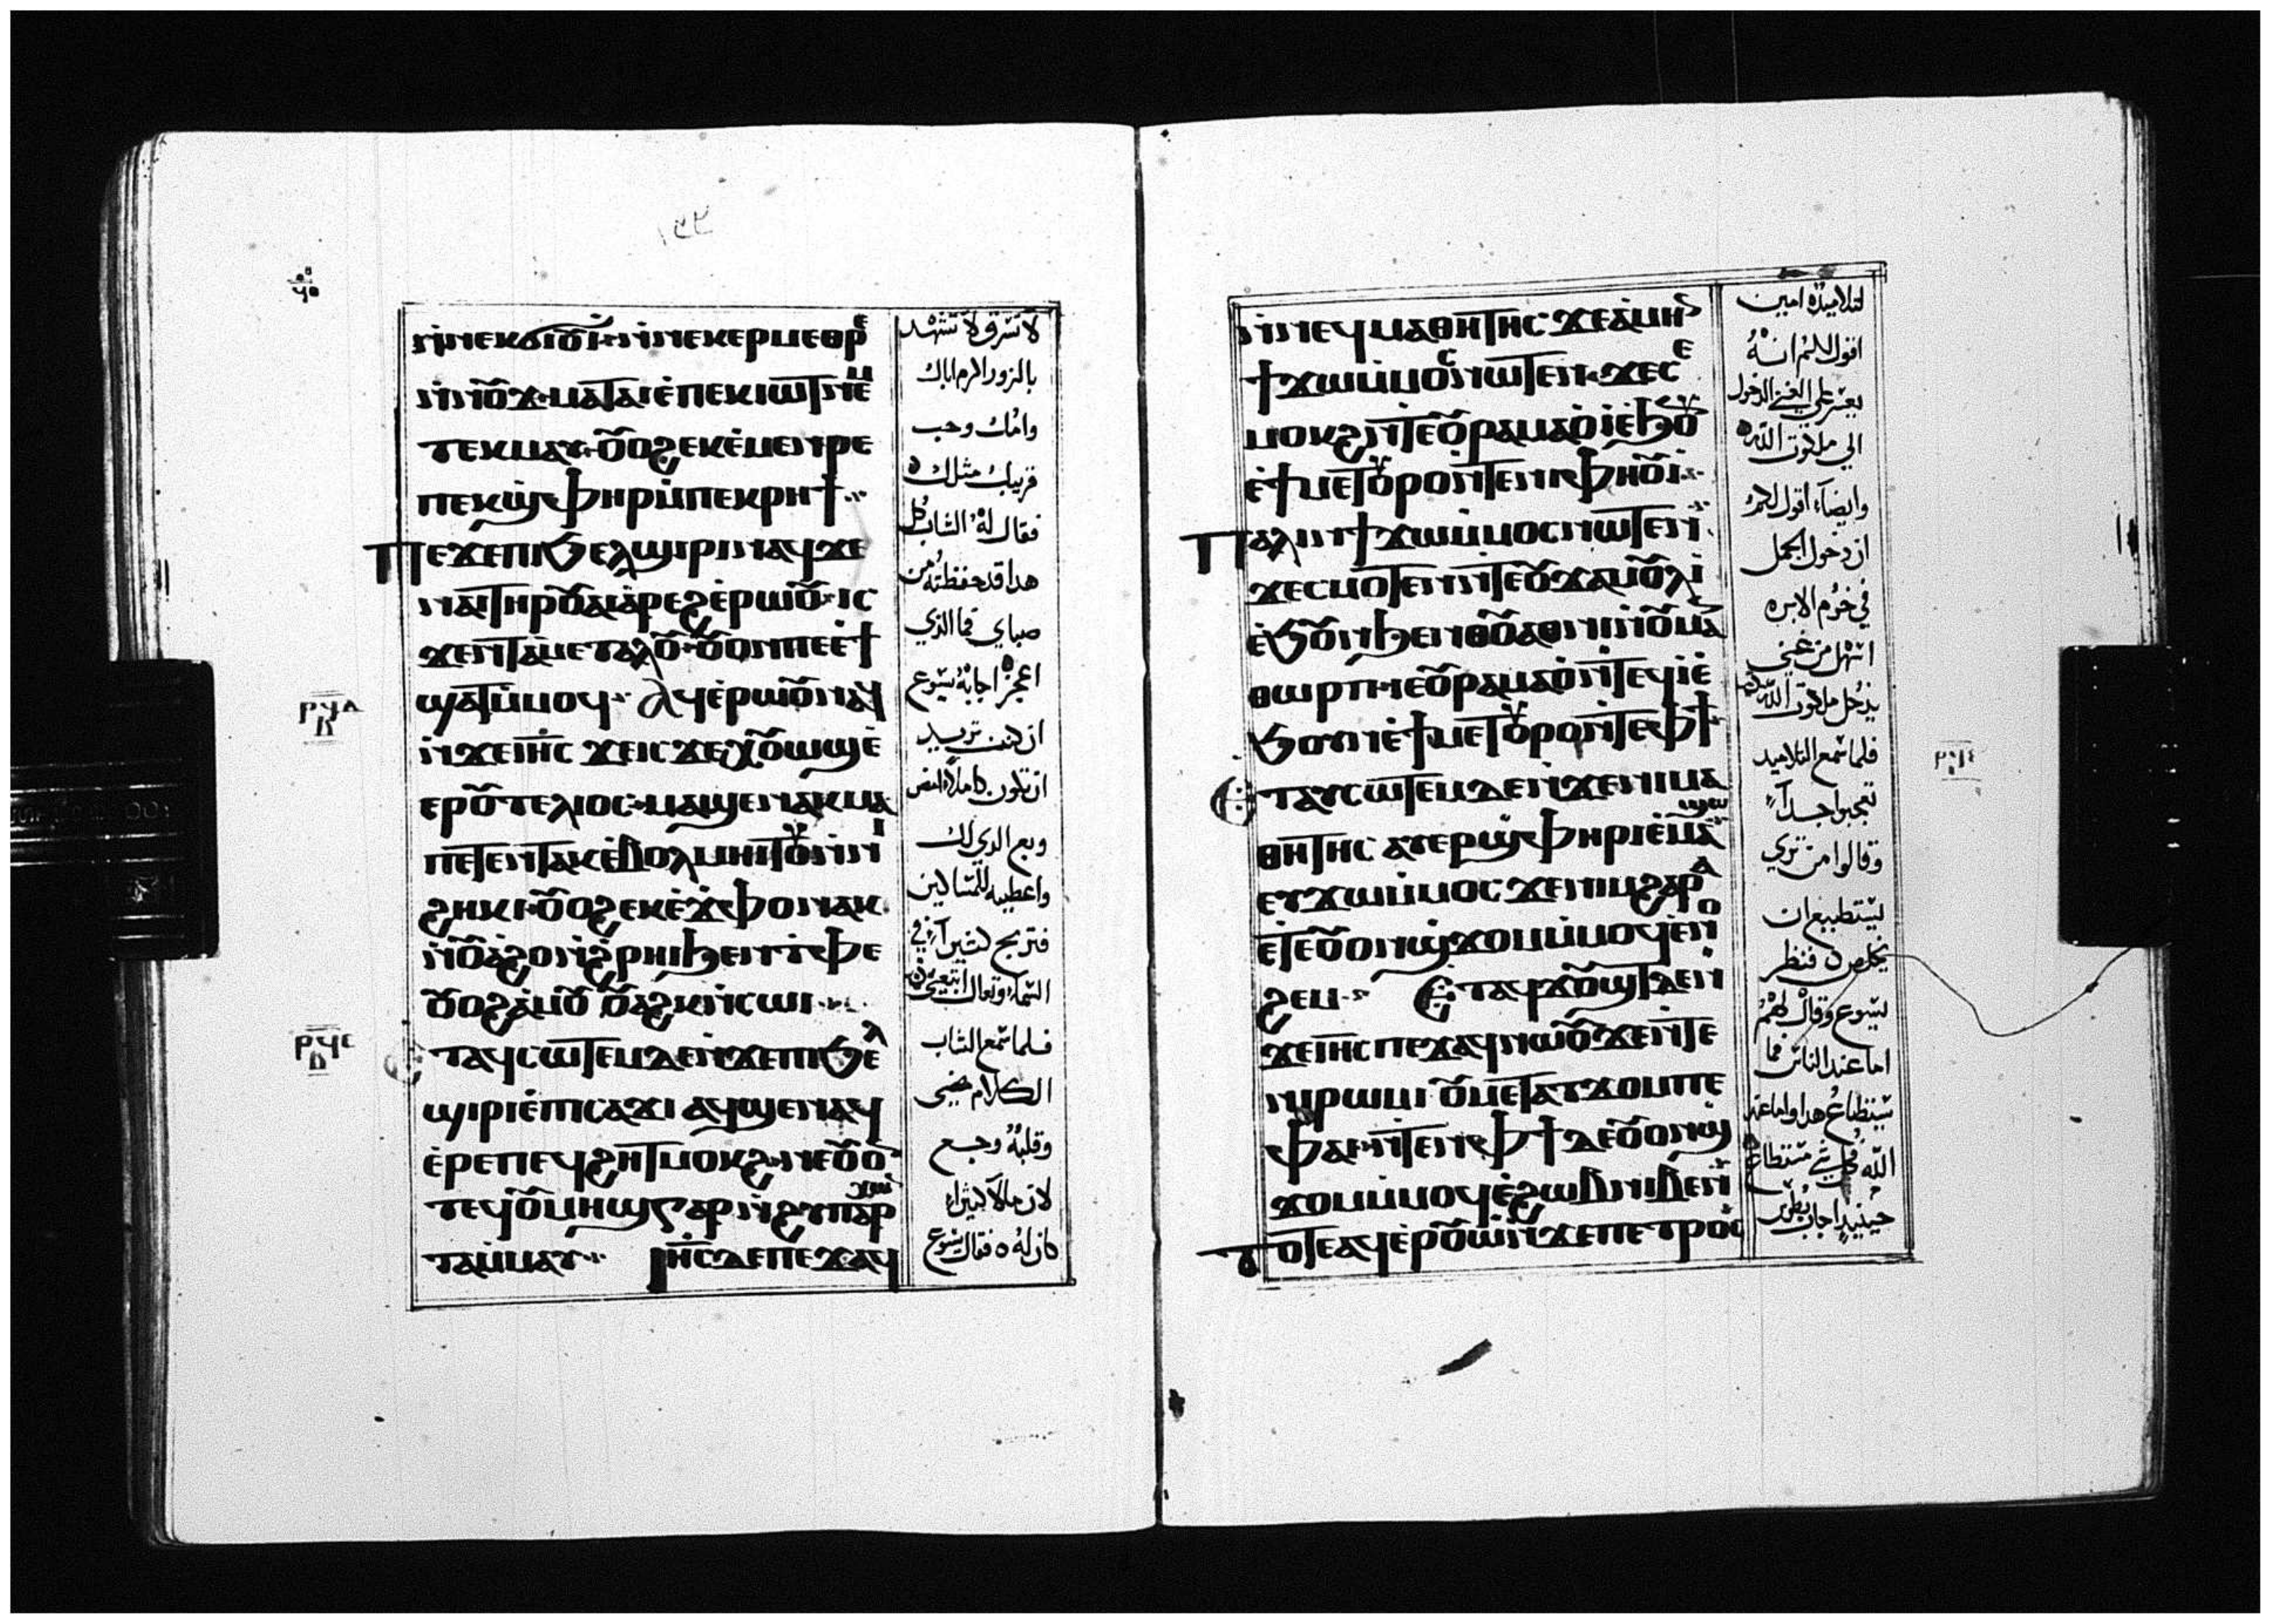 ١٣٢
ⲛ̀ⲛⲉⲕϭⲓⲟⲩⲓ̀ ⲛ̀ⲛⲉⲕⲉⲣⲙⲉⲑⲣⲉ
ⲛ̀ⲛⲟⲩϫ ⲙⲁⲧⲁⲓⲉ̀ⲡⲉⲕⲓⲱⲧ ⲛⲉⲙ
ⲧⲉⲕⲙⲁⲩ ⲟⲩⲟϩ ⲉⲕⲉ̀ⲙⲉⲛⲣⲉ
ⲡⲉⲕϣ̀ⲫⲏⲣ ⲙ̀ⲡⲉⲕⲣⲏϯ
Ⲡⲉϫⲉ ⲡⲓϧⲉⲗϣⲓⲣⲓ ⲛⲁϥ ϫⲉ
ⲛⲁⲓⲧⲏⲣⲟⲩ ⲁⲓⲁ̀ⲣⲉϩ ⲉ̀ⲣⲱⲟⲩ ⲓⲥ
ϫⲉⲛ ⲧⲁⲙⲉⲧⲁⲗⲟⲩ ⲟⲩⲟⲛ ⲡⲉ ⲉϯ
ϣⲁⲧ ⲙ̀ⲙⲟϥ Ⲁϥⲉ̀ⲣⲱⲟⲩ ⲛⲁϥ
ⲛ̀ϫⲉ ⲓⲏⲥ ϫⲉ ⲓⲥϫⲉ ⲭⲟⲩⲱϣ ⲉ̀
ⲉⲣⲟⲩⲧⲉⲗⲓⲟⲥ ⲙⲁϣⲉⲛⲁⲕ ⲙⲁ
ⲡⲉⲧⲉⲛⲧⲁⲕ ⲉ̀ⲃⲟⲗ ⲙⲏⲓⲧⲟⲩ ⲛ̀ⲛⲓ
ϩⲏⲕⲓ ⲟⲩⲟϩ ⲉⲕⲉ̀ϫ̀ⲫⲟ ⲛⲁⲕ
ⲛ̀ⲟⲩⲁ̀ϩⲟ ⲛ̀ϩⲣⲏⲓ ϧⲉⲛ ⲧ̀ⲫⲉ
ⲟⲩⲟϩ ⲁ̀ⲙⲟⲩ ⲟⲩⲁϩⲕ ⲛ̀ⲥⲱⲓ
Ⲉⲧⲁϥⲥⲱⲧⲉⲙ ⲇⲉ ⲛ̀ϫⲉ ⲡⲓϧⲉⲗ
ϣⲓⲣⲓ ⲉ̀ⲡⲓⲥⲁϫⲓ ⲁϥϣⲉⲛⲁϥ
ⲉ̀ⲣⲉ ⲡⲉϥϩⲏⲧ ⲙⲟⲕϩ ⲛⲉ ⲟⲩⲟⲛ
ⲧⲉϥ ⲟⲩⲙⲏϣ ⲅⲁⲣ ⲛ̀ϩⲩⲡⲁⲣⲭⲱⲛ
ⲧⲁ ⲙ̀ⲙⲁⲩ Ⲓⲏⲥ ⲇⲉ ⲡⲉϫⲁϥ
ⲣϥⲇ
ⲃ
ⲣϥⲉ
ⲃ
لا تسرق لا تشهد
بالزور اكرم اباك
وامك وحب
قريبك مثلك
فقال له الشاب كل
هدا قد حفظته من
صباي فما الذي
اعجزه اجابه يسوع
ان كنت تريد
ان تكون كاملا امض
وبع الدي لك
واعطيه للمساكين
فتربح كنيزا في
السماء وتعال اتبعني
فلما سمع الشاب
الكلام مضى
وقلبه وجع
لان مالا كثيرا
كان له فقال يسوع
ⲛ̀ⲛⲉϥⲙⲁⲑⲏⲧⲏⲥ ϫⲉ ⲁ̀ⲙⲏⲛ
ϯϫⲱ ⲙ̀ⲙⲟⲥ ⲛⲱⲧⲉⲛ ϫⲉ ⲥⲉ
ⲙⲟⲕϩ ⲛ̀ⲧⲉ ⲟⲩⲣⲁⲙⲁⲟ̀ ⲓ̀ ⲉ̀ϧⲟⲩⲛ
ⲉ̀ϯⲙⲉⲧⲟⲩⲣⲟ ⲛ̀ⲧⲉ ⲛⲓⲫⲏⲟⲩⲓ̀
Ⲡⲁⲗⲓⲛ ϯϫⲱ ⲙ̀ⲙⲟⲥ ⲛⲱⲧⲉⲛ
ϫⲉ ⲥⲙⲟⲧⲉⲛ ⲛ̀ⲧⲉ ⲟⲩϫⲁⲙⲟⲩⲗ ⲓ̀
ⲉ̀ϧⲟⲩⲛ ϧⲉⲛ ⲑⲟⲩⲁⲑⲛⲓ ⲛ̀ⲟⲩⲙⲁ
ⲑⲱⲣⲡ ⲓⲉ ⲟⲩⲣⲁⲙⲁⲟ̀ ⲛ̀ⲧⲉϥⲓ̀ ⲉ̀
ϧⲟⲩⲛ ⲉ̀ϯⲙⲉⲧⲟⲩⲣⲟ ⲛ̀ⲧⲉ ⲫϯ
Ⲉⲧⲁⲩⲥⲱⲧⲉⲙ ⲇⲉ ⲛ̀ϫⲉ ⲛⲓⲙⲁ
ⲑⲏⲧⲏⲥ ⲁⲩⲉⲣϣ̀ⲫⲏⲣⲓ ⲉ̀ⲙⲁϣⲱ
ⲉⲩϫⲱ ⲙ̀ⲙⲟⲥ ϫⲉ ⲛⲓⲙ ϩⲁⲣⲁ
ⲉ̀ⲧⲉ ⲟⲩⲟⲛ ϣ̀ϫⲟⲙ ⲙ̀ⲙⲟϥ ⲉ̀ⲛⲟ
ϩⲉⲙ Ⲉⲧⲁϥϫⲟⲩϣⲧ ⲇⲉ ⲛ̀
ϫⲉ ⲓⲏⲥ ⲡⲉϫⲁϥ ⲛⲱⲟⲩ ϫⲉ ⲛ̀ⲧⲉ
ⲛⲓⲣⲱⲙⲓ ⲟⲩⲙⲉⲧⲁⲧϫⲟⲙ ⲡⲉ
ⲫⲁⲓ ⲛ̀ⲧⲉⲛ ⲫϯ ⲇⲉ ⲟⲩⲟⲛ ϣ̀
ϫⲟⲙ ⲙ̀ⲙⲟϥ ⲉ̀ϩⲱⲃ ⲛⲓⲃⲉⲛ
Ⲧⲟⲧⲉ ⲁϥⲉ̀ⲣⲟⲩⲱ̀ ⲛ̀ϫⲉ ⲡⲉⲧⲣⲟⲥ
لتلاميذه امين
اقول لكم انه
يعسر على الغني الدخول
الي ملكوت الله
وايضا اقول لكم
ان دخول الجمل
في خرم الابره
اسهل من غني
يدخل ملكوت الله
فلما سمع التلاميد
تعجبوا جدا
وقالوا من تري
يستطيع ان
يخلص فنظر
يسوع وقال لهم
اما عند الناس فما
يستطاع هدا واما عند
الله فكل شي مستطاع
حينيد اجاب بطرس